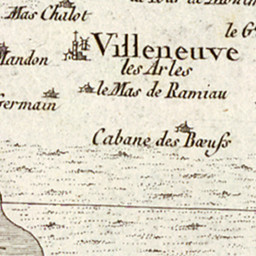 Mas Chalot
le G
Mandon
Villeneuve
les Arles
le Mas de Ramiau
Germain
Cabane des Bœufs